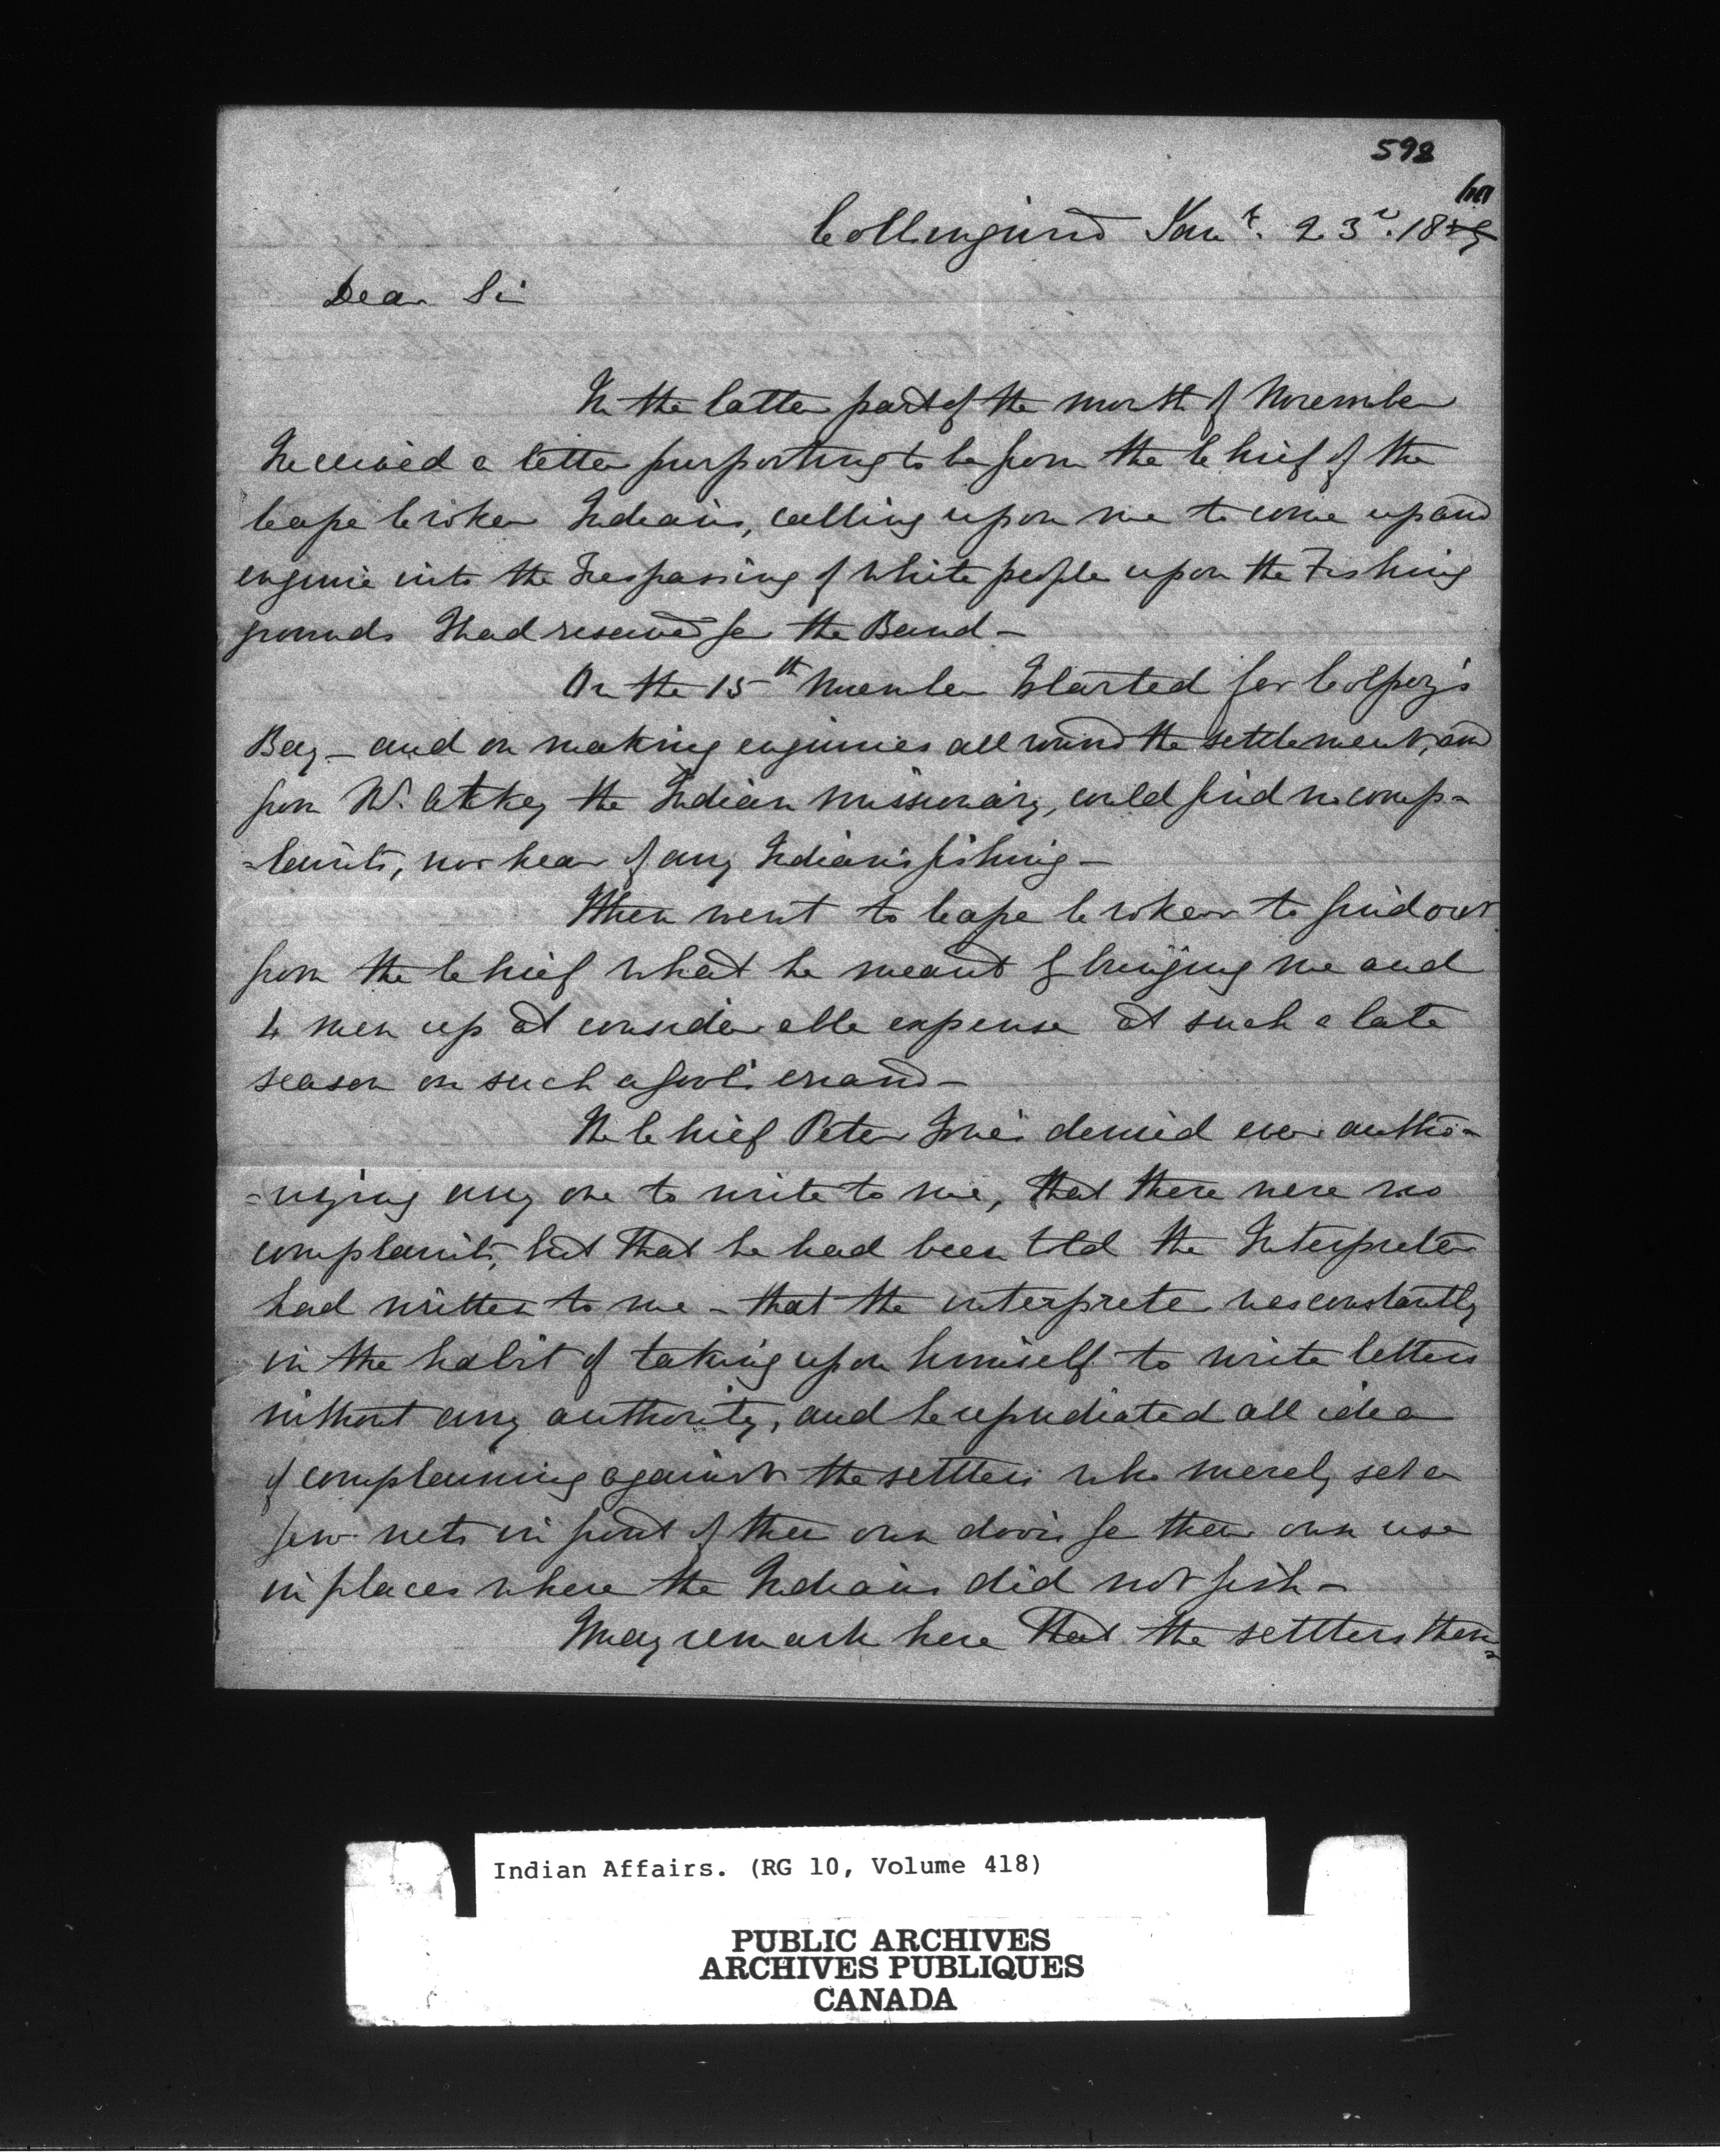 598
Collingwood Jany. 23d. 1859
60
Dear Sir
In the latter part of the month of November
I received a letter purporting to be from the Chief of the
Cape Croker Indians, calling upon me to come up and
enquire into the Trespassing of white people upon the Fishing
grounds I had reserved for the Band –
On the 15th November I started for Colpoy's
Bay – and on making enquiries all round the settlement, and
from Mr. Atkey the Indian missionary, could find no comp=
=laints, nor hear of any Indians fishing –
I then went to Cape Croker to find out
from the Chief what he meant by bringing me and
4 men up at considerable expense at such a late
season on such a fool's errand –
The Chief Peter Jones denied ever autho=
=rizing any one to write to me, that there were no
complaints, but that he had been told the Interpreter
had written to me – that the interpreter was constantly
in the habit of taking upon himself to write letters
without any authority, and he repudiated all idea
of complaining against the settlers who merely set a
few nets in front of their own doors for their own use
in places where the Indians did not fish –
I may remark here that the settlers them=
Indian Affairs. (RG 10, Volume 418)
PUBLIC ARCHIVES
ARCHIVES PUBLIQUES
CANADA